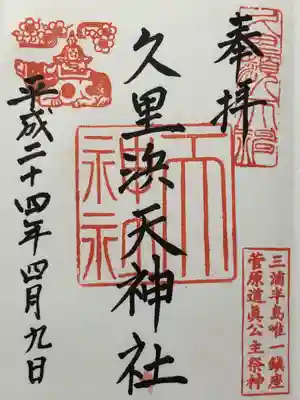 奉拝
三浦半島唯一鎮座
菅原道眞公主祭神
久里浜天神社
平成二十四年四月九日